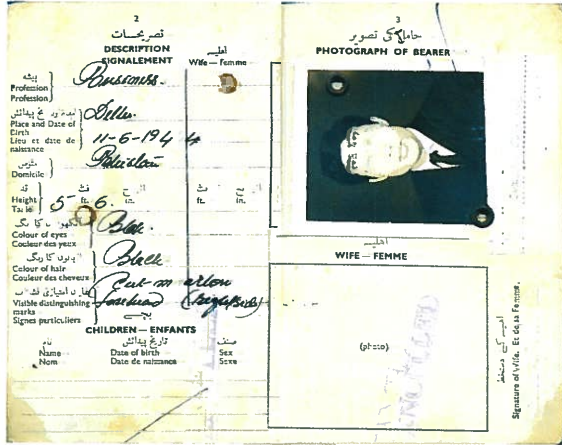 2
تصریحات
DESCRIPTION
SIGNALEMENT
اہلیہ
Wife – Femme
پیشہ
Profession
Profession
Business.
Place and Date of
Birth
Lieu et date de
naissance
Delhi
11-6-1944
Domicile
Pakistan
قد
Height
Taille
5 ft. 6 in.
فٹ
ft. in.
Colour of eyes
Couleur des yeux
بالوں کا رنگ
Colour of hair
Couleur des cheveux
Black
Visible distinguishing
marks
Signes particuliers
Cut on
forehead
بچے
CHILDREN – ENFANTS
نام
Name
Nom
تاریخ پیدائش
Date of birth
Date de naissance
صنف
Sex
Sexe
3
حامل کی تصویر
PHOTOGRAPH OF BEARER
اہلیہ
WIFE – FEMME
(photo)
اہلیہ کے دستخط
Signature of Wife. Et de sa Femme.